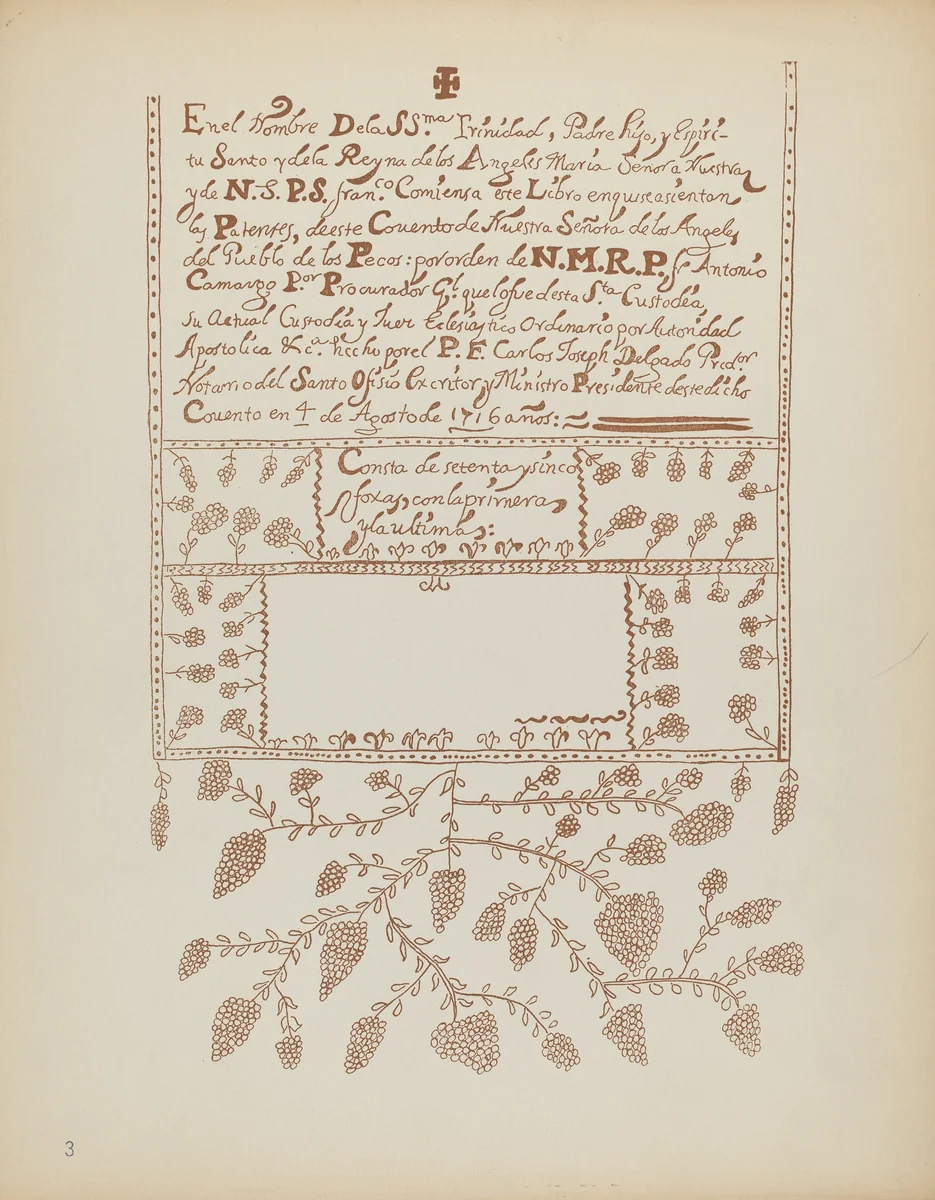 En el Nombre De la SS.ma Trinidad, Padre hijo, y Espiri-
tu Santo y de la Reyna de los Angeles Maria Señora Nuestra
y de N.S. P.S. fran.co Comiensa este Libro enquiseasientan
las Patentes, de este Couento de Nuestra Señora de los Angeles
del Pueblo de los Pecos: por orden de N.M.R.P. fr Antonio
Camargo P.or Procurador G.l que lo fue desta S.ta Custodia,
Su Actual Custodia y Juez Eclesiastico Ordinario por Autoridad
Apostolica &c.a hecho por el P. F. Carlos Joseph Delgado Pred.or
Notario del Santo Ofisio Excritor, y Ministro Presidente deste dicho
Couento en 4 de Agosto de 1716 años:
Consta de setenta y sinco
foxas, con la primera
y la ultima:
3